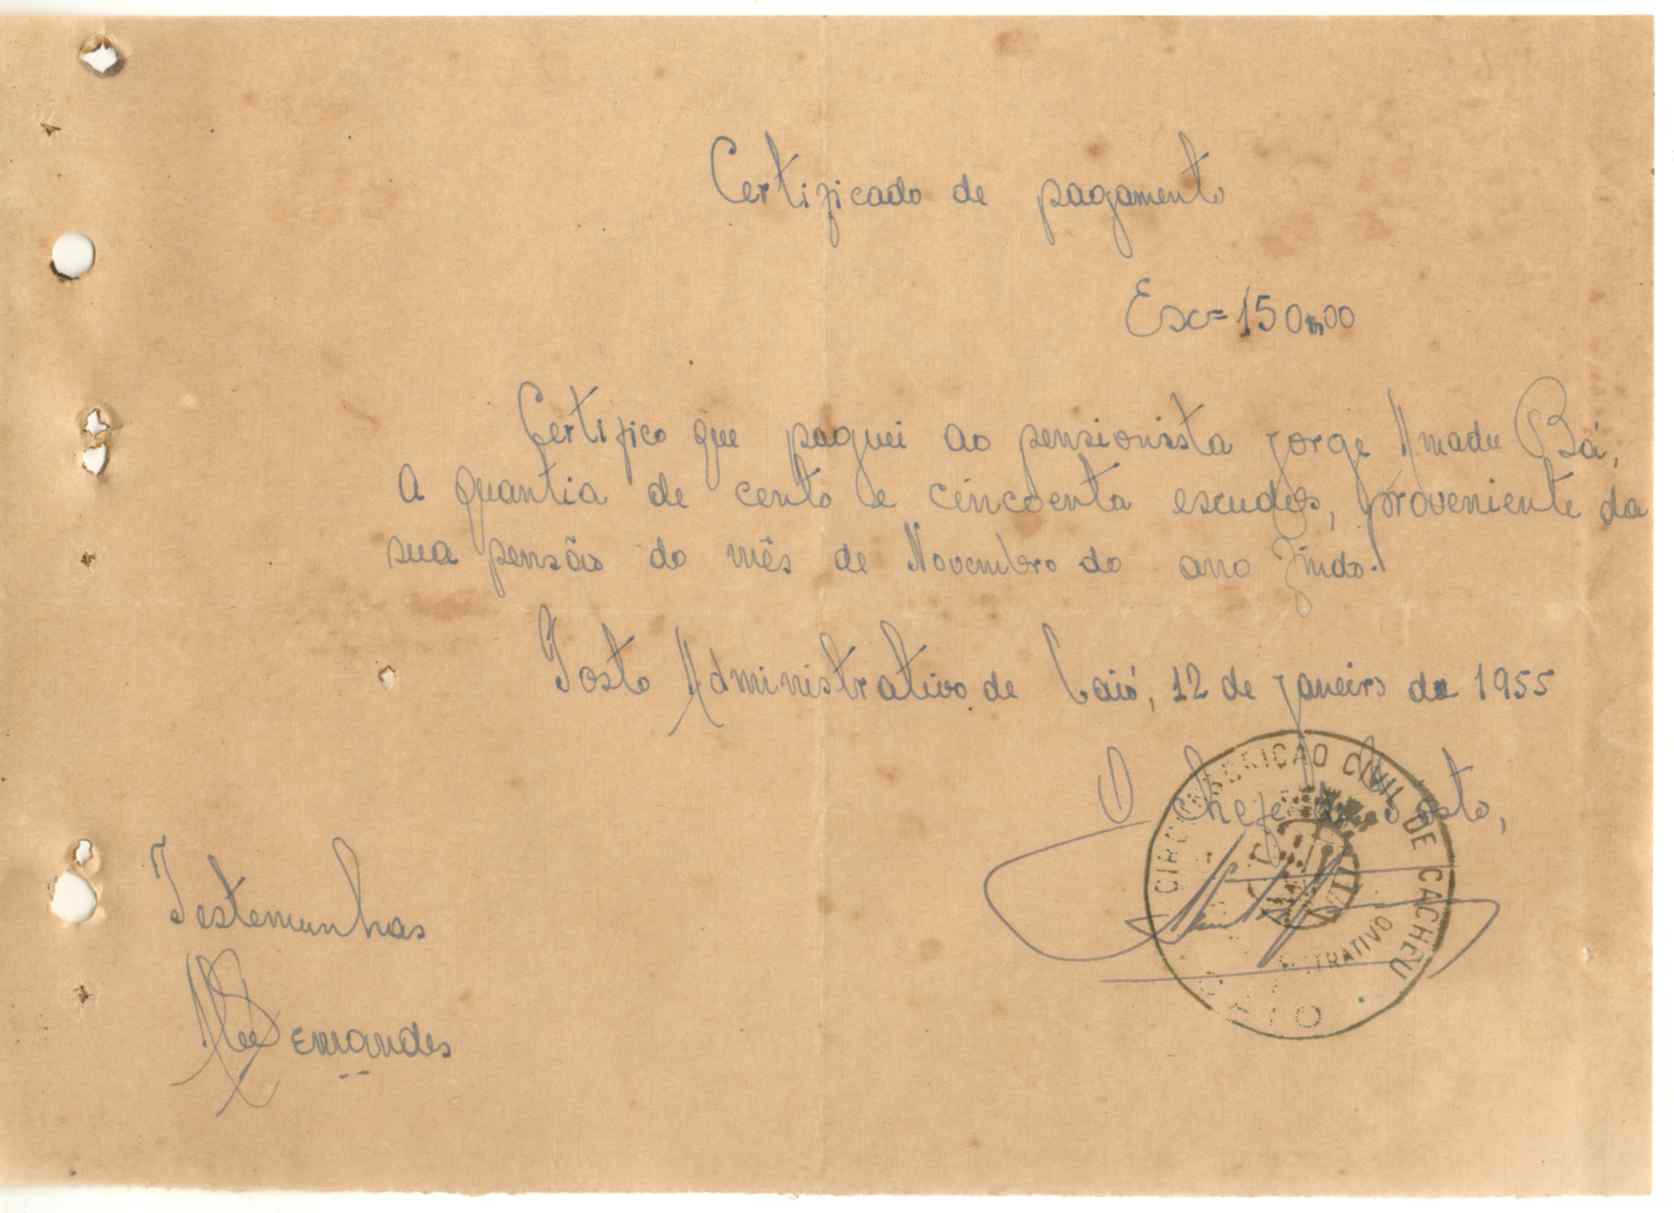 Certificado de pagamento
Esc= 150$00
Certifico que paguei ao pensionista Jorge Amadu Bá,
a quantia de cento e cincoenta escudos, proveniente da
sua pensão do mês de Novembro do ano findo.
Posto Administrativo de Caió, 12 de Janeiro de 1955
O Chefe do Posto,
CIRCUNSCRIÇÃO CIVIL DE CACHEU
ADMINISTRATIVO
CAIO
Testemunhas